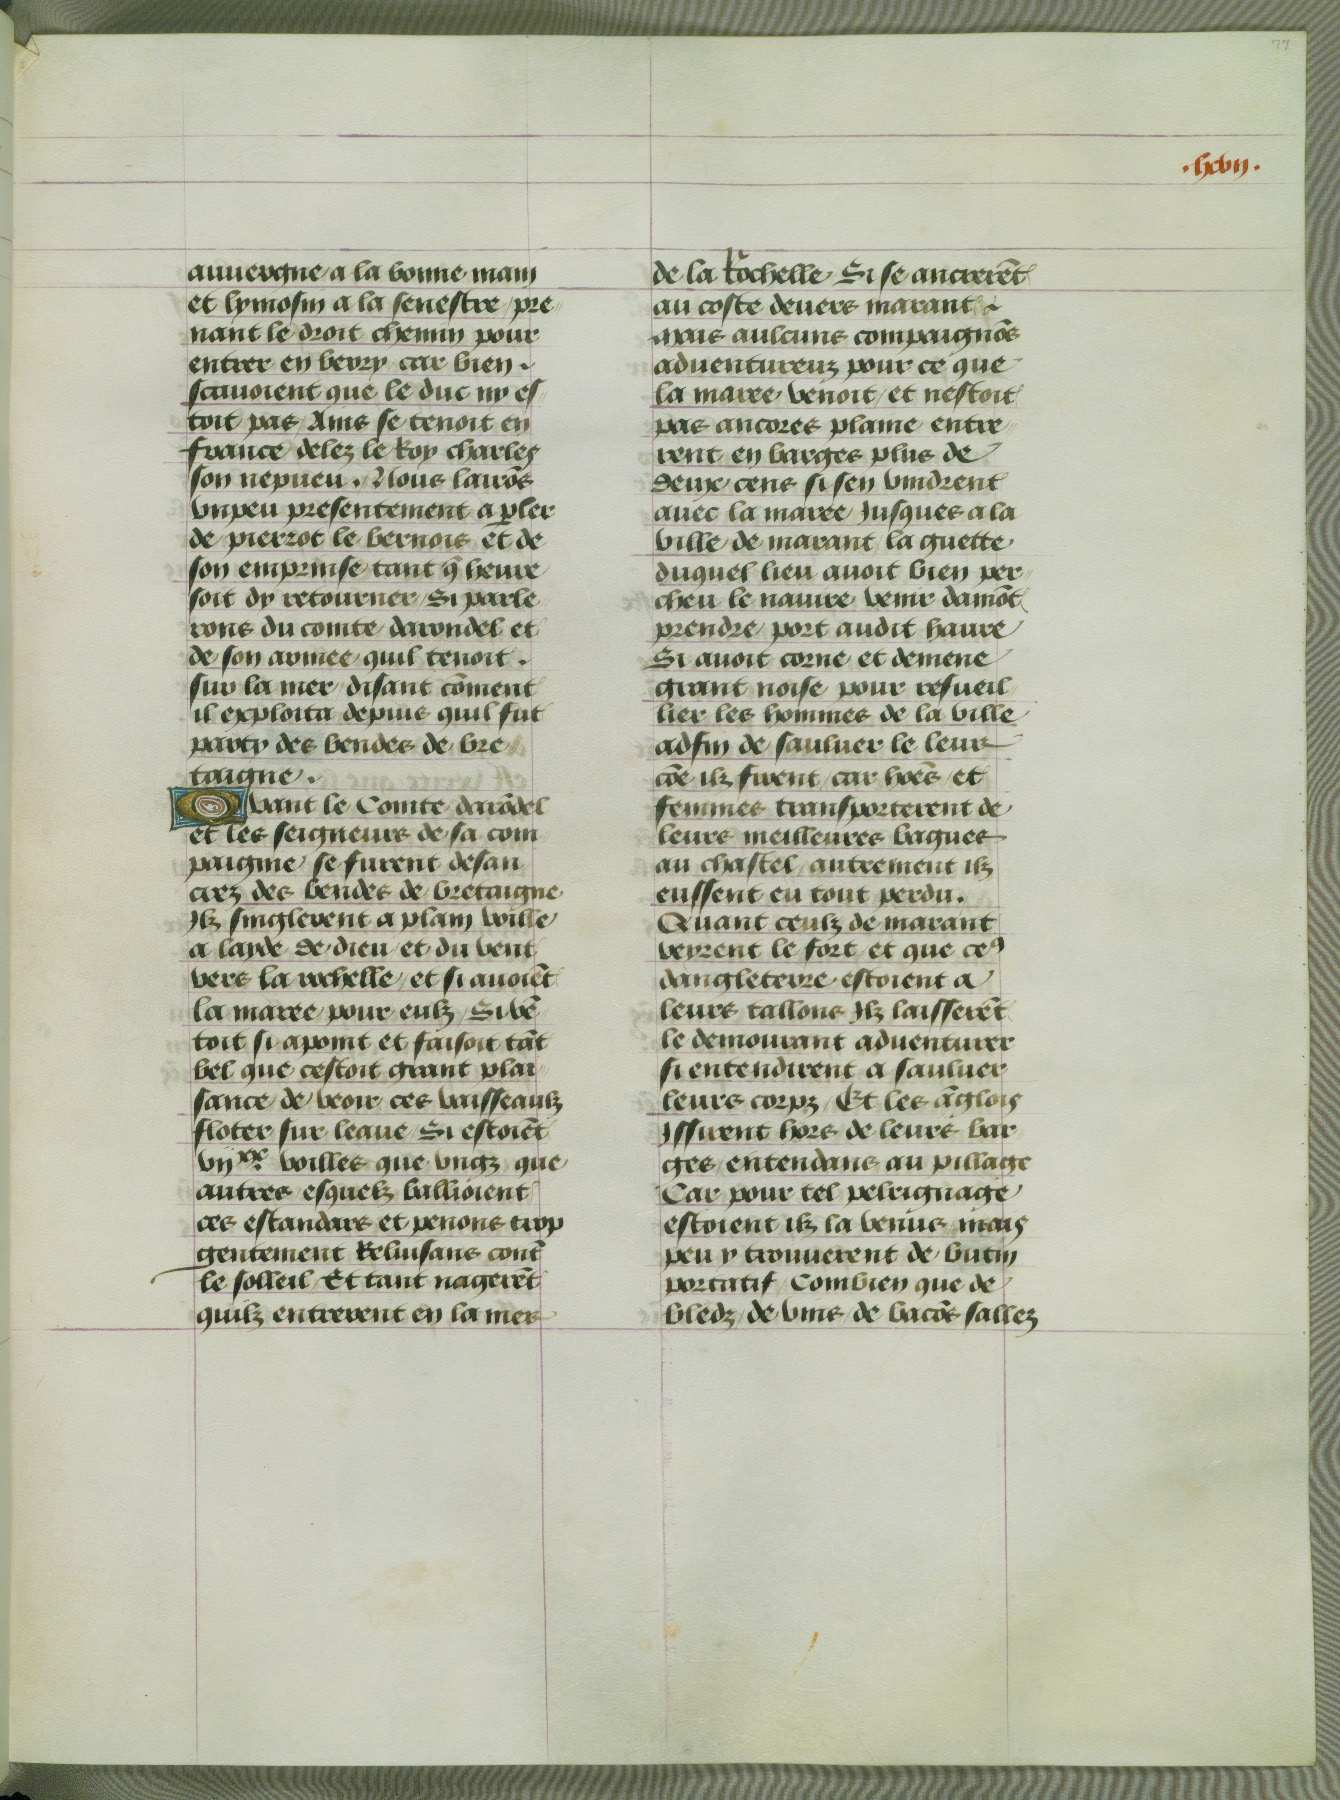 77
.lxvij.
auuergne / a la bonne main
et lymosin a la senestre / pre
nant le droit chemin pour
entrer en berry car bien .
scauoient que le duc ny es
toit pas Ains se tenoit en
france delez le Roy charles
son nepueu . Nous lairōs
vnpeu presentement a p̱ler
de pierrot le bernois et de
son emprinse tant q̄ heure
soit dy retourner / Si parle
rons du comte darondel et
de son armee quil tenoit .
sur la mer / disant cōment
il exploita depuis quil fut
party des bendes de bre
taigne .
Quant le Comte darōdel
et les seigneurs de sa com
paignie se furent desan
crez des bendes de bretaigne
Ilz singlerent a plain voille
a layde de dieu et du vent
vers la rochelle / et si auoiēt
la maree pour eulz / Si vē
toit si apoint et faisoit tāt
bel que cestoit grant plai
sance de veoir ces vaisseaulz
floter sur leaue / Si estoiēt
vijxx. voilles que vngz que
autres esquelz ballioient
ces estandars et penons trop
gentement Reluisans cont̄
le solleil / Et tant nagerēt
quilz entrerent en la mer
de la Rochelle / Si se ancrerēt
au coste deuers marant /
mais aulcuns compaignōs
aduentureuz pour ce que
la maree venoit / et nestoit
pas ancores plaine entre
rent en barges plus de
deux cens si sen vindrent
auec la maree Jusques a la
ville de marant la guette
duquel lieu auoit bien per
cheu le nauire venir damōt
prendre port audit haure
Si auoit corne et demene
grant noise pour resueil
lier les hommes de la ville
adfin de sauluer le leur
cōe ilz firent / car hōēs et
femmes transporterent de
leurs meilleures bagues
au chastel / autrement ilz
eussent eu tout perdu .
Quant ceulz de marant
veyrent le fort et que ceꝰ
dangleterre estoient a
leurs tallons Ilz laisserēt
le demourant aduenturer
si entendirent a sauluer
leurs corpz / Et les āglois
Issirent hors de leurs bar
ges / entendans au pillage
Car pour tel pelrignage
estoient ilz la venus mais
peu y trouuerent de butin
portatif / Combien que de
bledz / de vins / de bacōs sallez